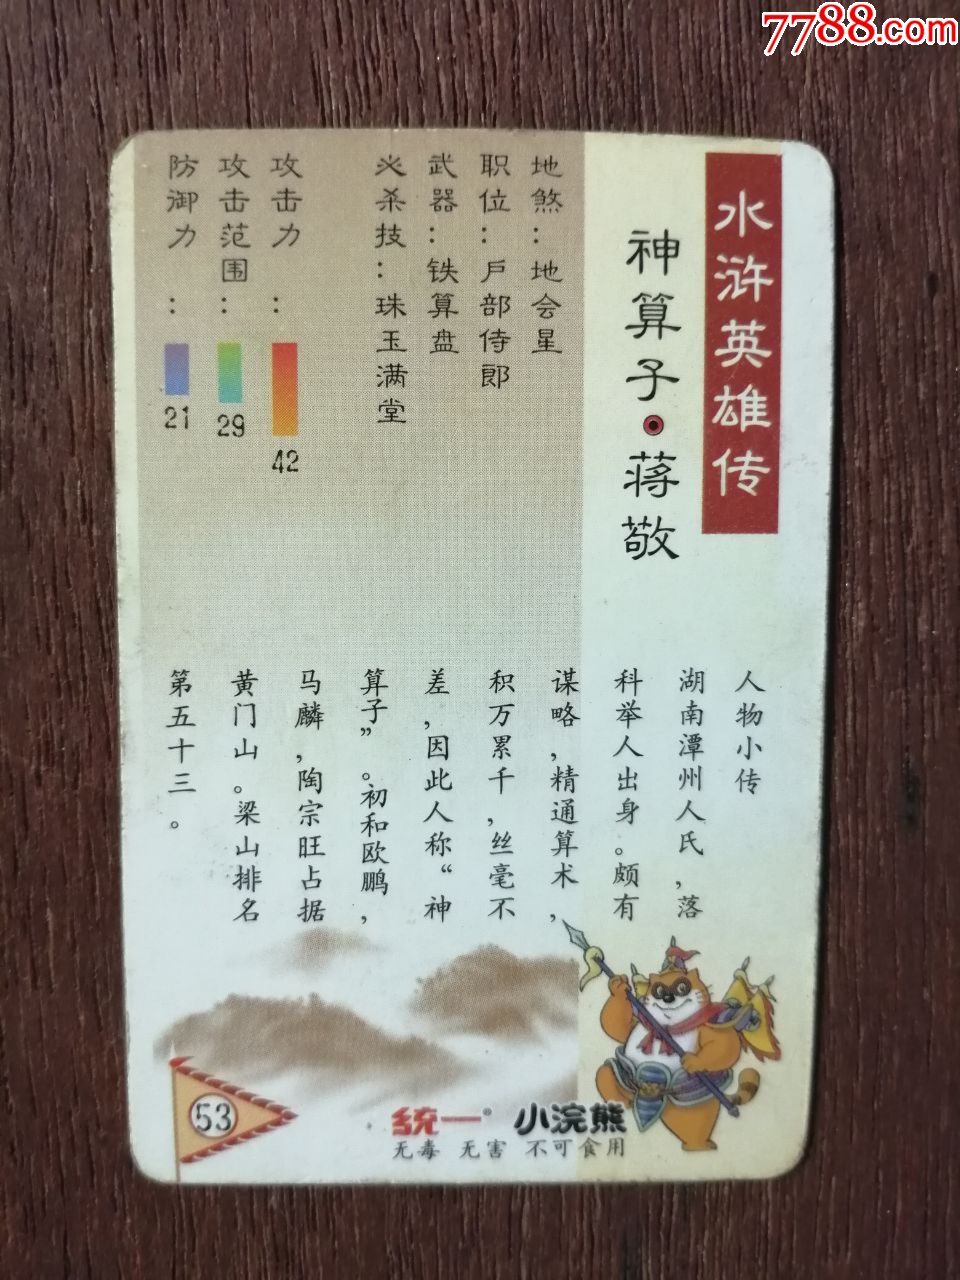 7788.com
水浒英雄传
神算子·蒋敬
地煞：地会星
职位：户部侍郎
武器：铁算盘
必杀技：珠玉满堂
攻击力：42
攻击范围：29
防御力：21
人物小传
湖南潭州人氏，落
科举人出身。颇有
谋略，精通算术，
积万累千，丝毫不
差，因此人称“神
算子”。初和欧鹏，
马麟，陶宗旺占据
黄门山。梁山排名
第五十三。
53
统一® 小浣熊
无毒 无害 不可食用